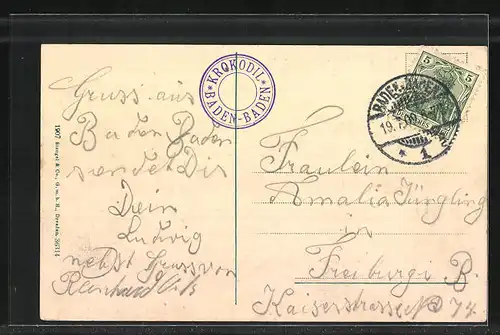 Gruss aus
Baden Baden
sendet Dir
Dein
Ludwig
nebst Gruss von
Reinhard
* KROKODIL *
BADEN-BADEN
5 5
BADEN-BADEN
19.
* 1
Fräulein
Amalia Jüngling
in
Freiburg i B.
Kaiserstrasse No 74.
1907 Stengel & Co., G. m. b. H., Dresden